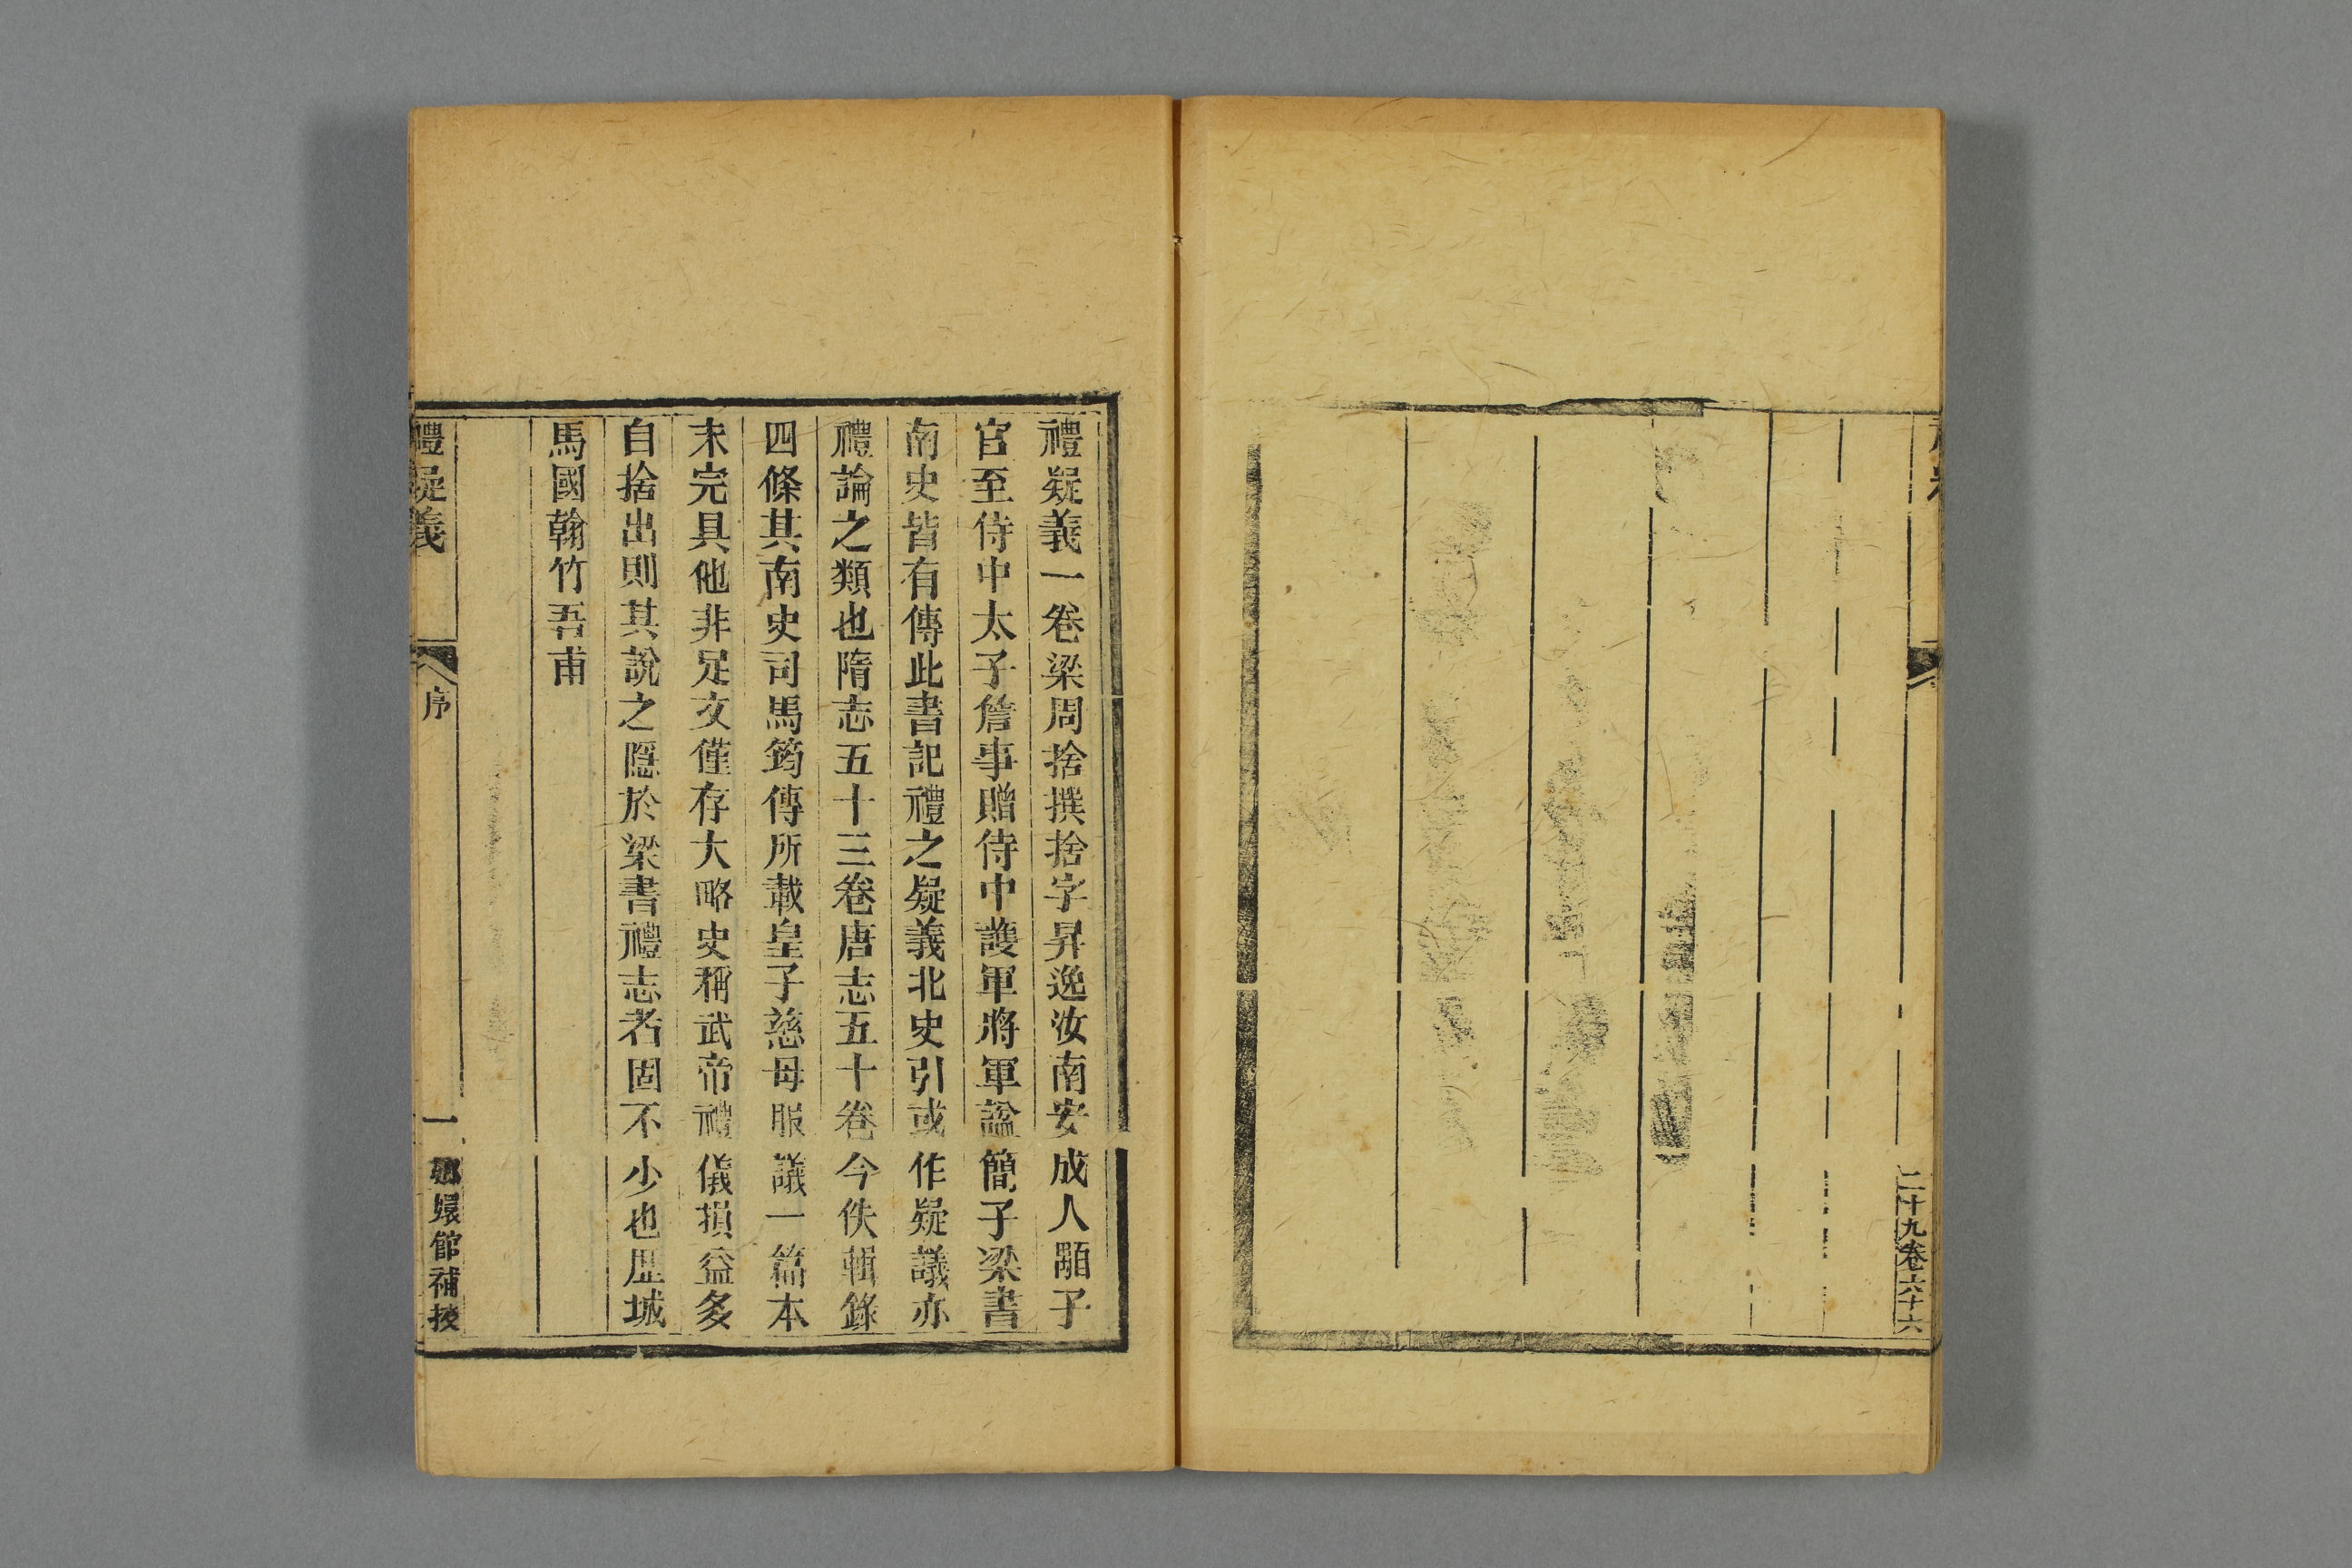 二十九卷六十六
禮疑義一卷梁周捨撰捨字昇逸汝南安成人顒子
官至侍中太子詹事贈侍中護軍將軍諡簡子梁書
南史皆有傳此書記禮之疑義北史引或作疑議亦
禮論之類也隋志五十三卷唐志五十卷今佚輯錄
四條其南史司馬筠傳所載皇子慈母服議一篇本
末完具他非足文僅存大略史稱武帝禮儀損益多
自捨出則其說之隱於梁書禮志者固不少也歷城
馬國翰竹吾甫
禮疑義
序
一
嫏嬛館補挍